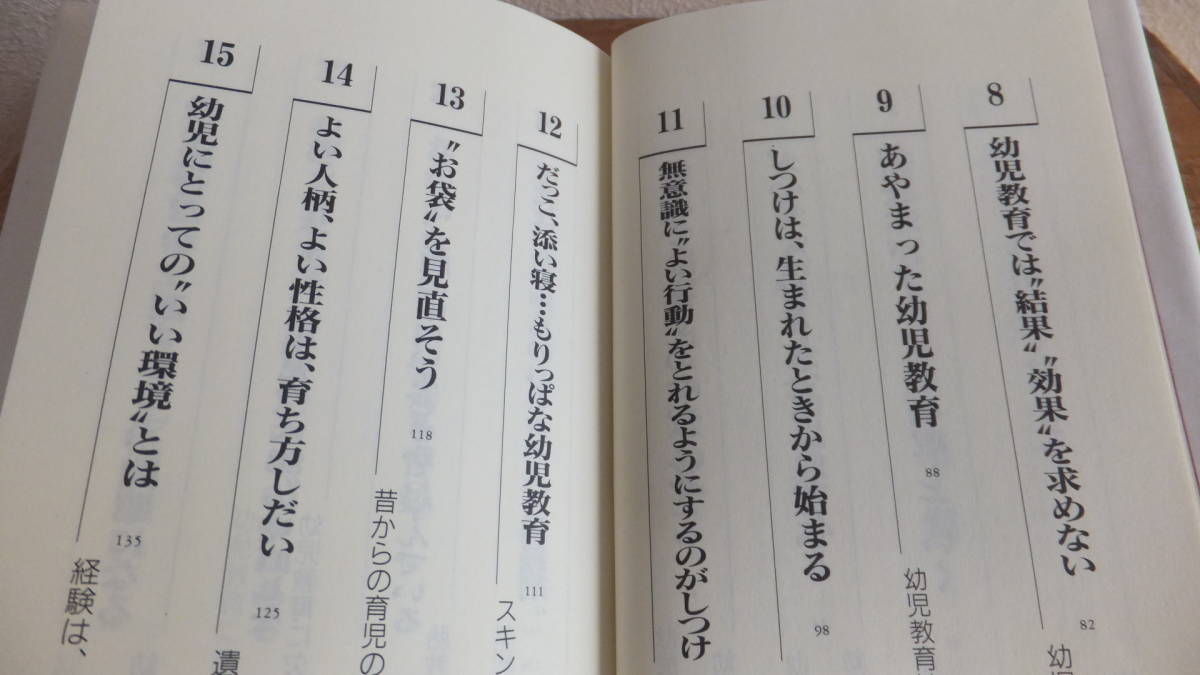 8
幼児教育では“結果”“効果”を求めない
82
幼児
9
あやまった幼児教育
88
幼児教育
10
しつけは、生まれたときから始まる
98
11
無意識に“よい行動”をとれるようにするのがしつけ
12
だっこ、添い寝…もりっぱな幼児教育
111
スキン
13
“お袋”を見直そう
118
昔からの育児の
14
よい人柄、よい性格は、育ち方しだい
125
遺
15
幼児にとっての“いい環境”とは
135
経験は、